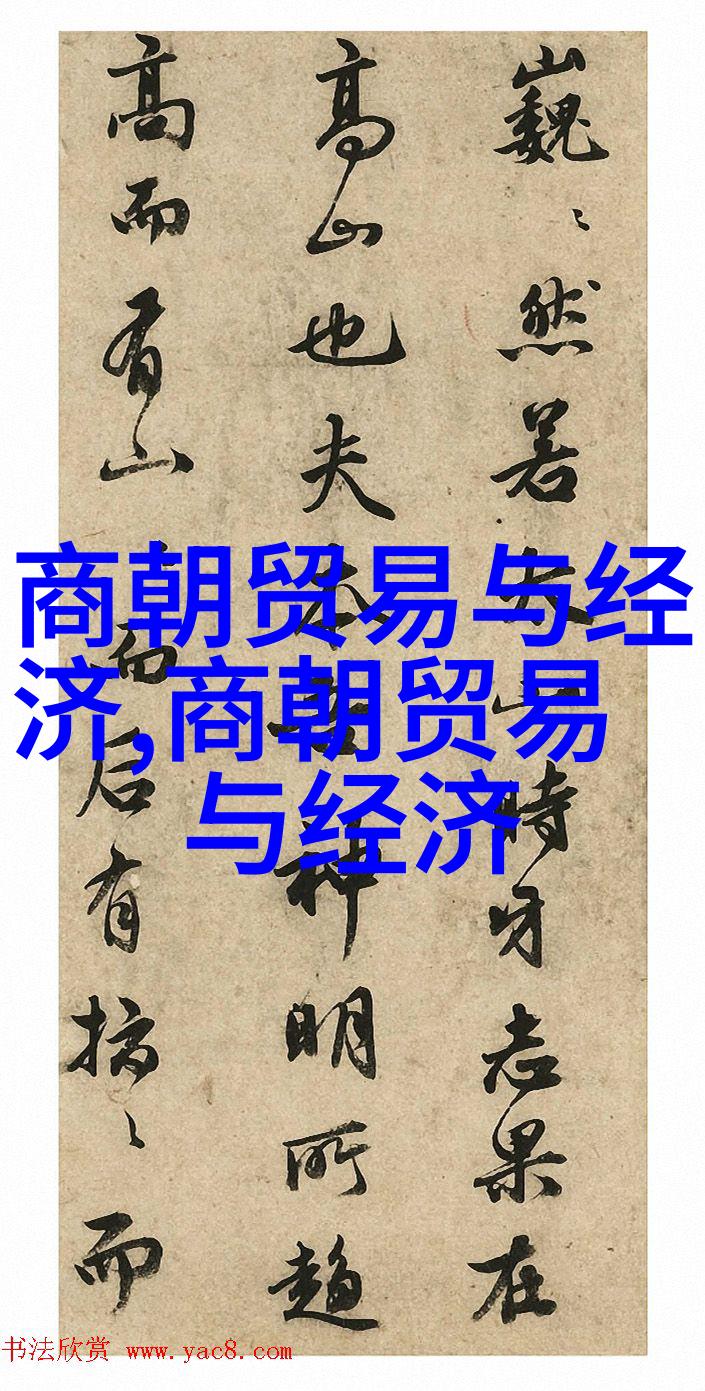 巍〻然若山時牙志果在
高山也夫本神明所趨
高而有山而后有〻而
商朝贸易与经
济,商朝贸易
与经济
书法欣赏 www.yac8.com